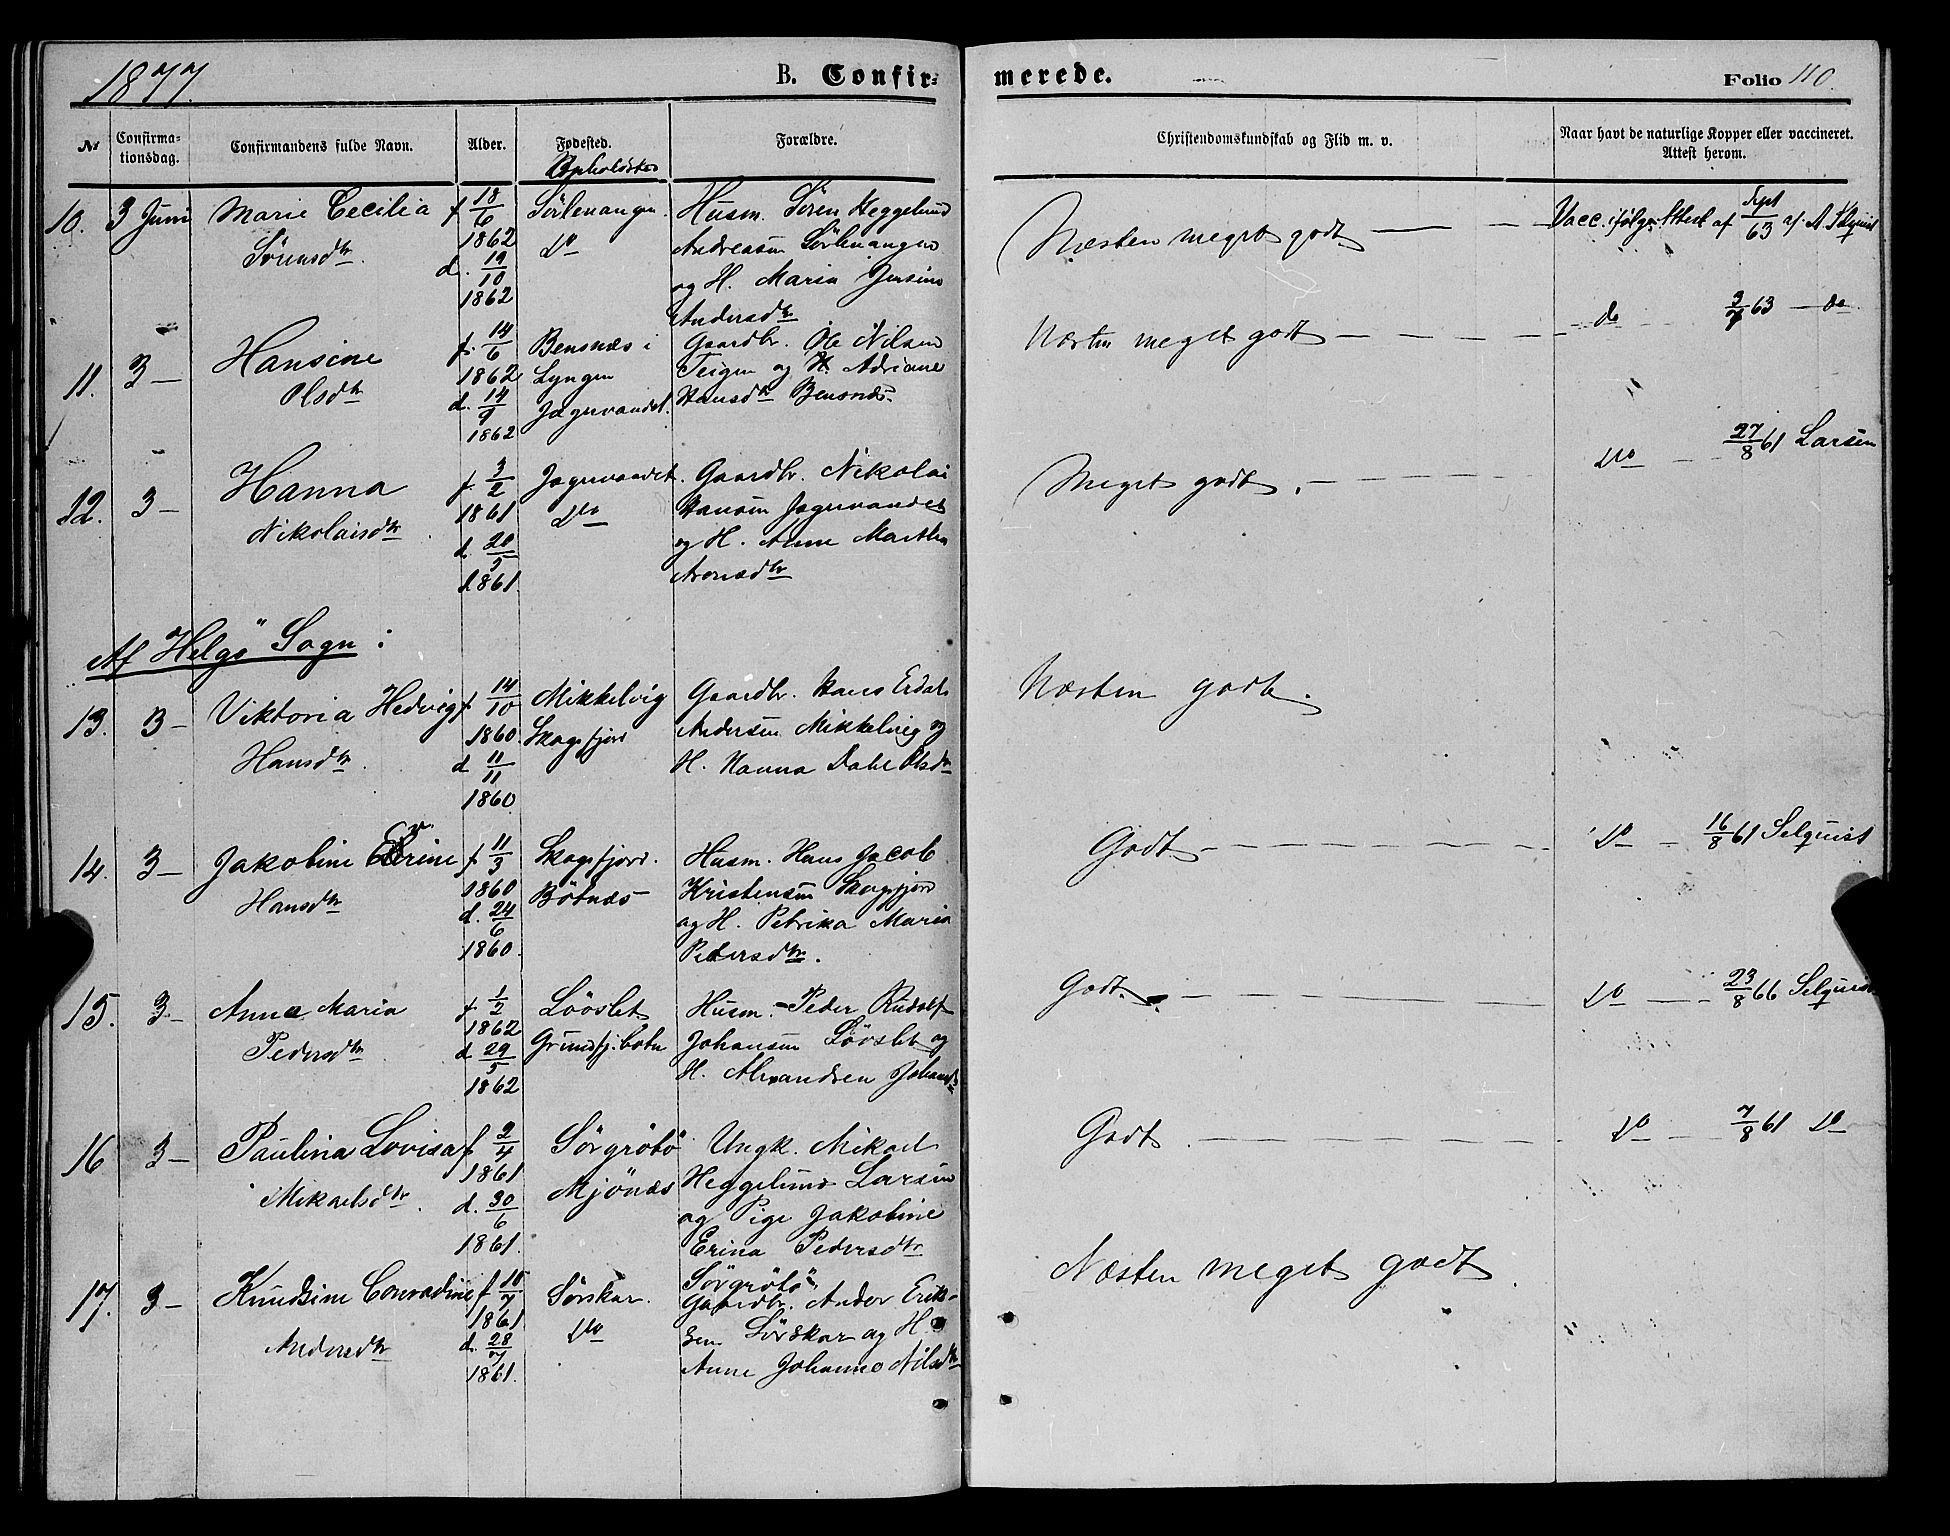 1877.
B. Confir-
merede.
Folio 110.
№
Confirma-
tionsdag.
Confirmandens fulde Navn.
Alder.
Fødested.
Opholdsted
Forældre.
Christendomskundskab og Flid m. v.
Naar havt de naturlige Kopper eller vaccineret.
Attest herom.
10. 3 Juni Marie Cecilia
Sörensdtr
f 18/6
1862
d. 19/10
1862
Sörlenangen.
Do
Husm. Sören Heggelund
Andreasen Sörlenangen
og H. Maria Jensine
Andersdtr
Næsten meget godt
Vacc. ifølge Attest af Sept/63 af A. Selquist
11. 3 — Hansine
Olsdtr
f. 14/6
1862
d. 14/9
1862
Bensnæs i
Lyngen
Jægervandet.
Gaardbr. Ole Nilsen
Teigen og H. Adriane
Hansdtr Bensnæs.
Næsten meget godt
do 3/7 63 — do
12. 3 — Hanna
Nikolaisdtr.
f. 3/2
1861
d. 20/5
1861.
Jægervandet.
Do
Gaardbr. Nikolai
Hansen Jægervandet
og H. Anne Martha
Aronsdtr
Meget godt.
Do 27/8 61 Larsen
Af Helgö Sogn:
13. 3 — Viktoria Hedvig
Hansdtr.
f 14/10
1860.
d 11/11
1860
Mikkelvig
Skogsfjord
Gaardbr. Hans Erdal
Andersen Mikkelvig og
H. Hanna Dahl Olsdtr
Næsten godt.
14. 3 — Jakobine
Hansdtr
f 11/3
1860
d. 24/6
1860.
Skogsfjord.
Bötnæs —
Husm. Hans Jacob
Kristensen Skogsfjord
og H. Petrika Maria
Pedersdtr.
Godt
Do 16/8 61 Selquist
15. 3 — Anna Maria
Pedersdtr
f 1/2
1862
d. 29/5
1862
Löoslet
Grundfj.botn
Husm. Peder Rudolf
Johansen Lövslet og
H. Alexandren Johansdtr
Godt.
Do 23/8 66 Selquist
16 3 — Paulina Lovisa
Mikaelsdtr.
f 2/4
1861
d. 30/6
1861.
Sörgrötö
Mjönæs
Ungk. Mikael
Heggelund Larsen
og Pige Jakobine
Erina Pedersdtr
Sörgrötö
Godt
Do 7/8 61 Do
17. 3 — Knudsine Conradine
Andersdtr
f 10/7
1861
d. 28/7
1861.
Sörskar.
Do
Gaardbr. Ander Erik-
sen Sörskar og H.
Anne Johanna Nilsdtr
Næsten meget godt.